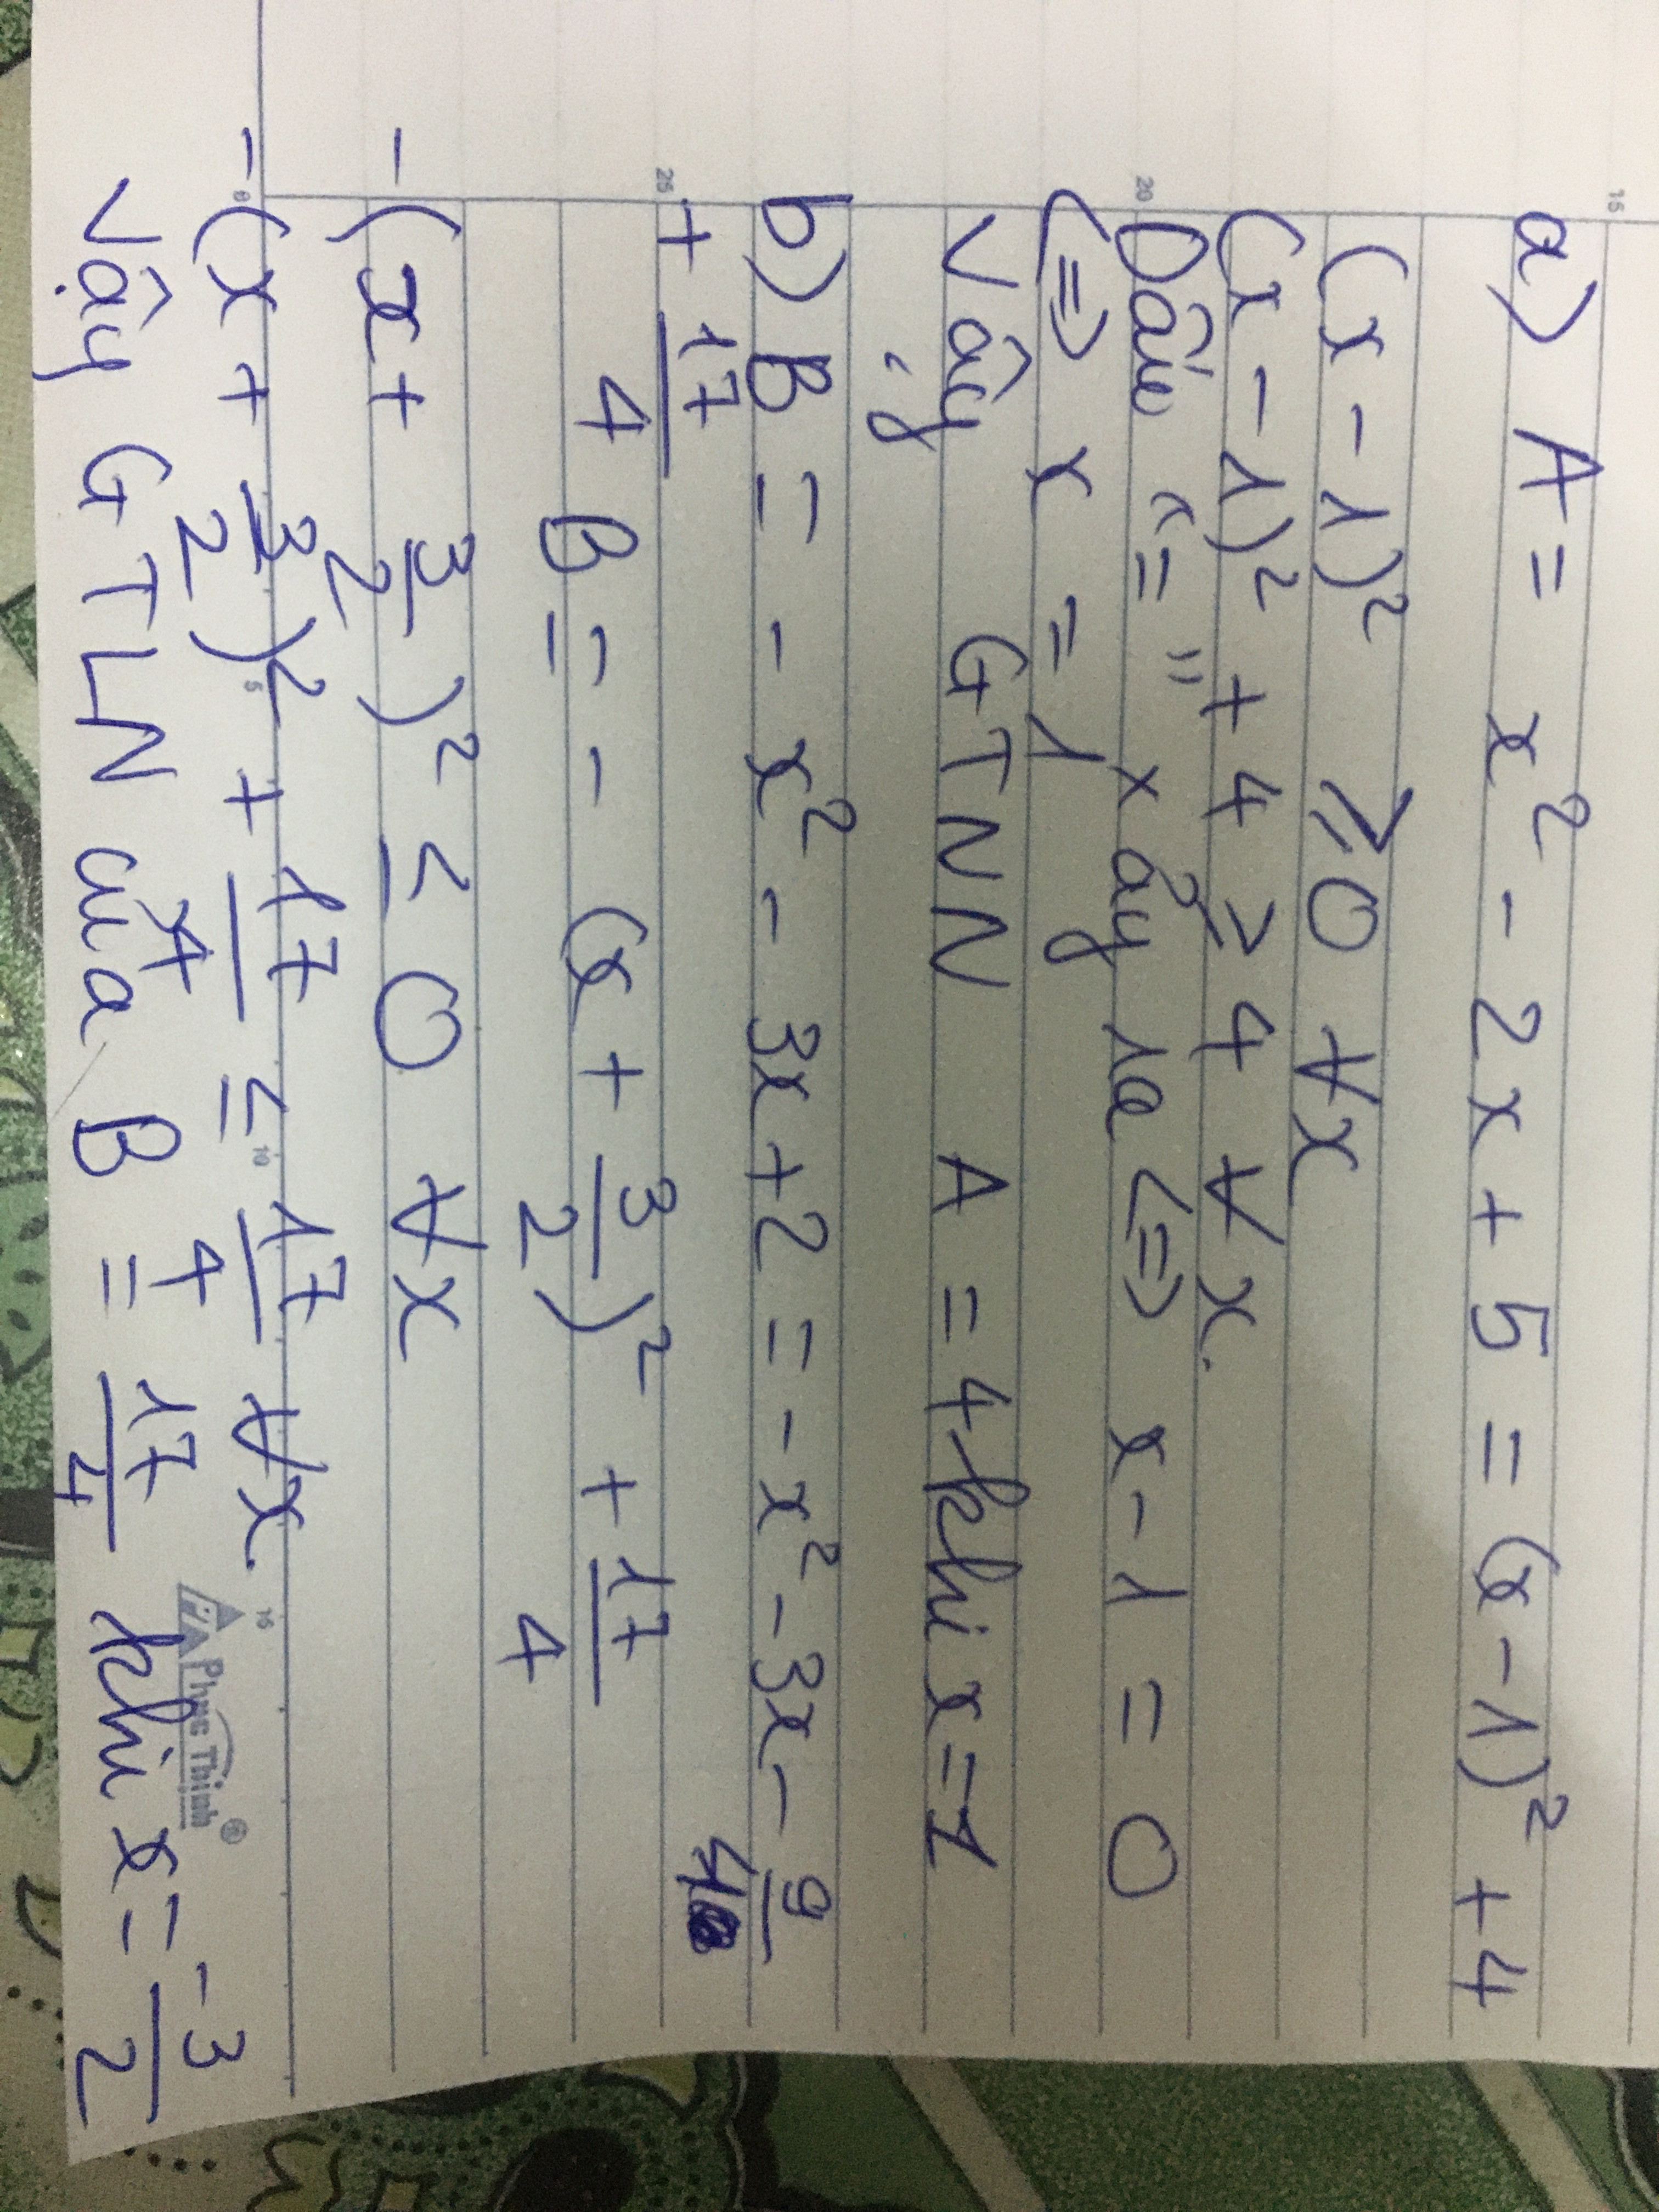 a) A = x² - 2x + 5 = (x - 1)² + 4
(x - 1)² ≥ 0 ∀x
(x - 1)² + 4 ≥ 4 ∀x.
Dấu "=" xảy ra <=> x - 1 = 0
<=> x = 1
Vậy GTNN A = 4 khi x = 1
b) B = - x² - 3x + 2 = - x² - 3x - 9/4
+ 17/4
B = - (x + 3/2)² + 17/4
- (x + 3/2)² ≤ 0 ∀x
- (x + 3/2)² + 17/4 ≤ 17/4 ∀x.
Vậy GTLN của B = 17/4 khi x = -3/2
15
20
25
0
5
10
15
Phúc Thịnh ®